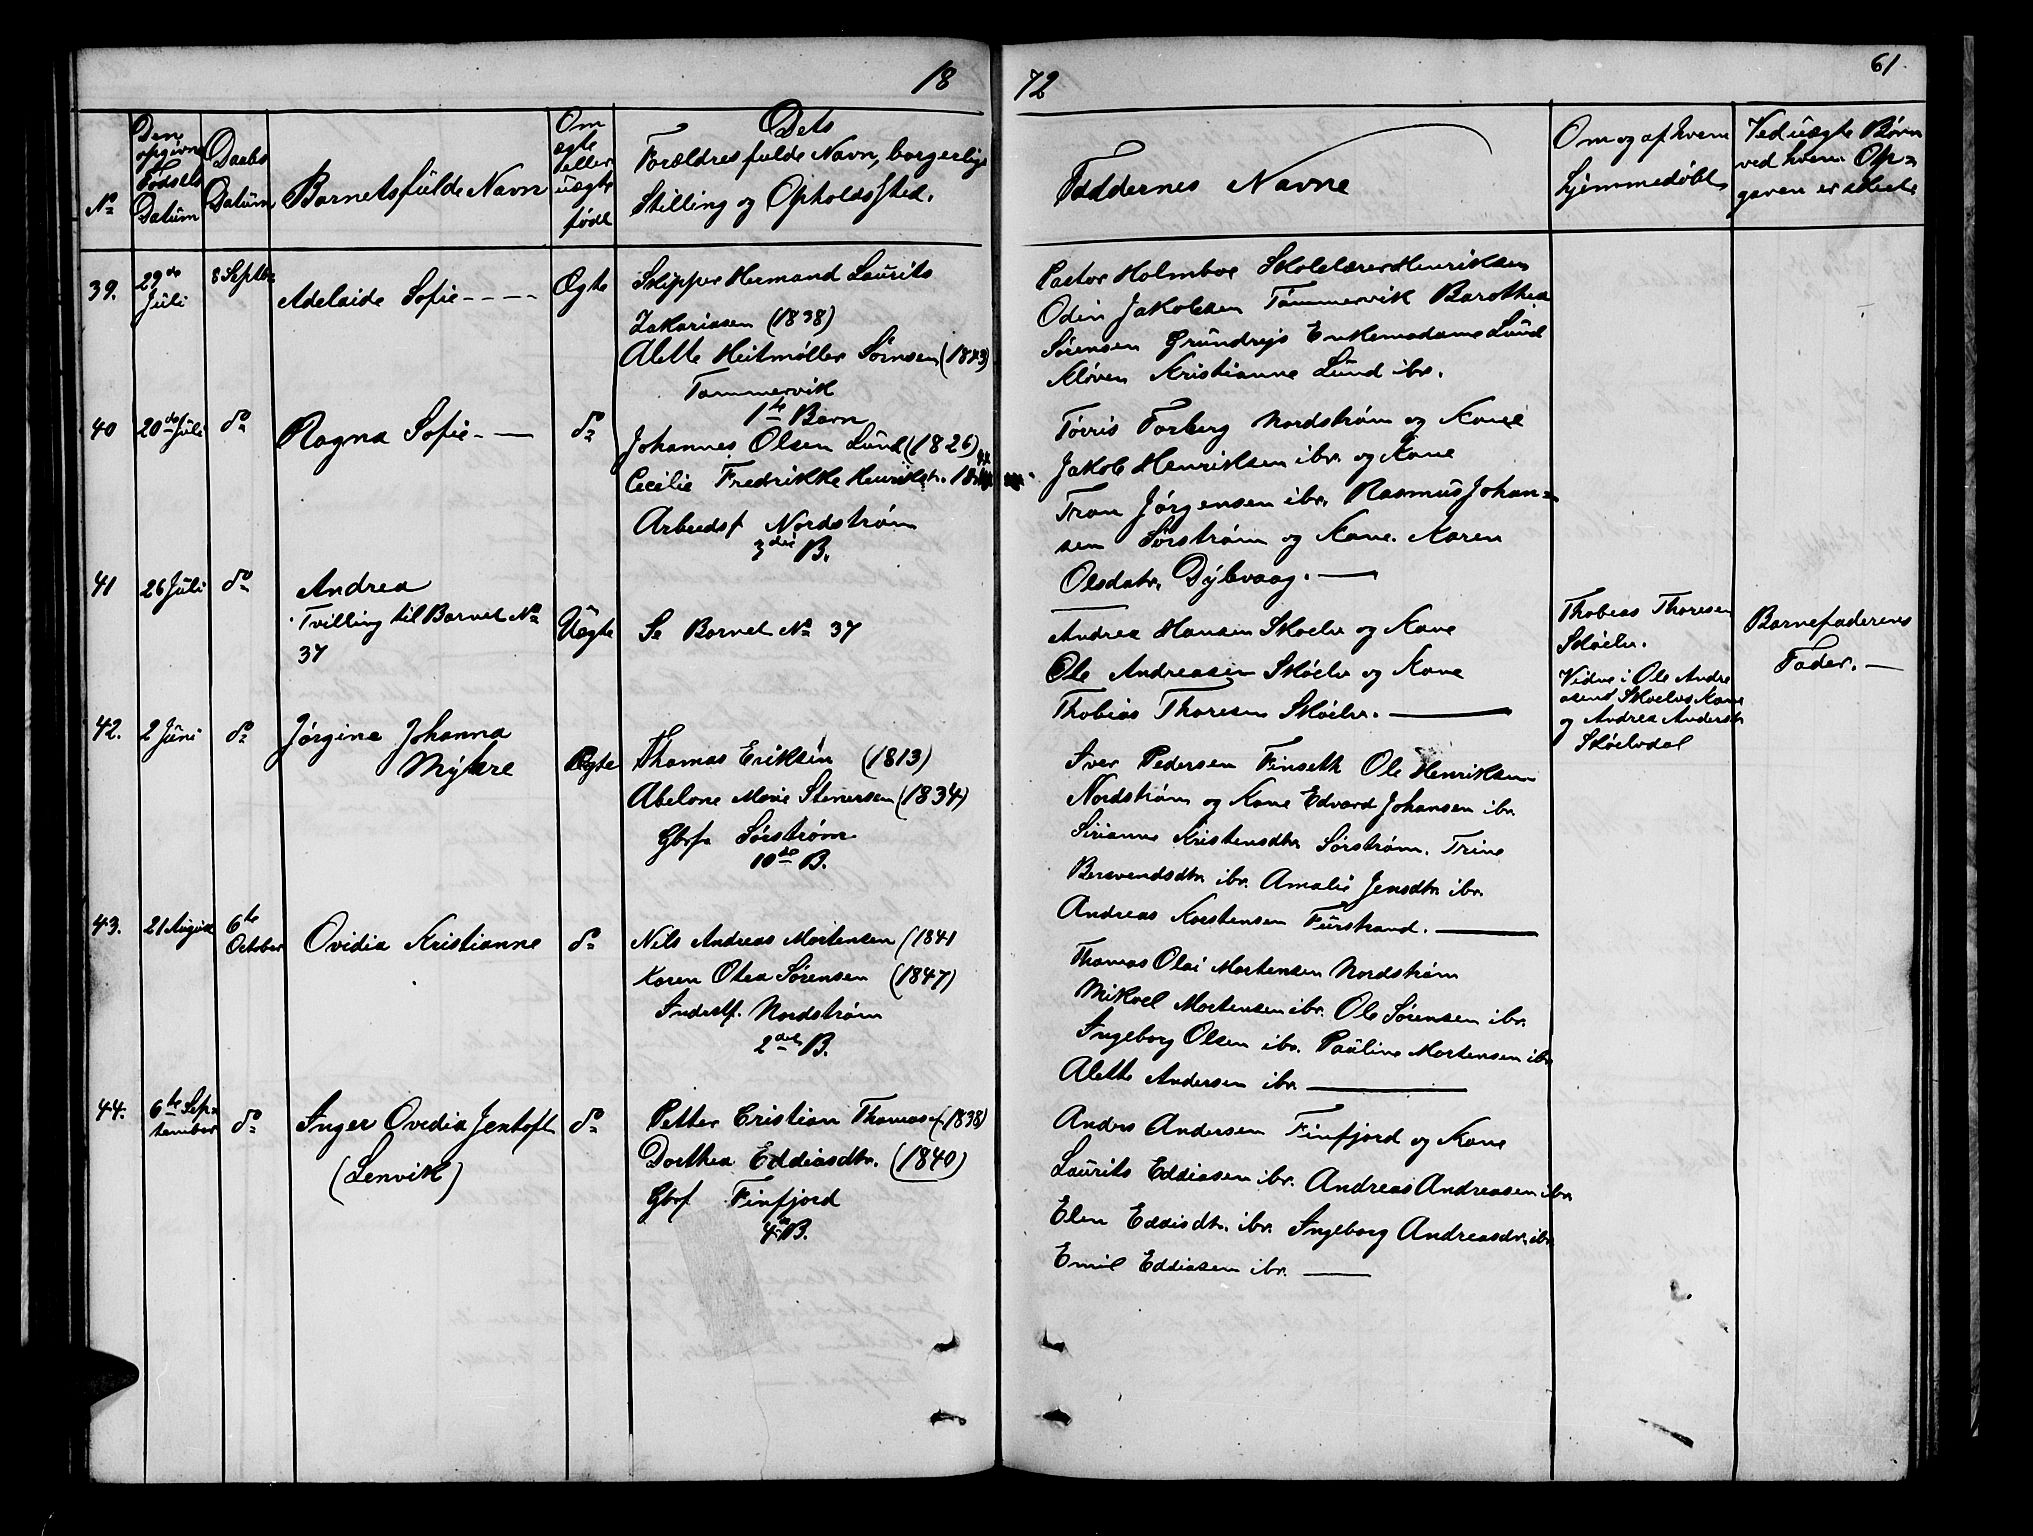 18
72
61
No
Den opgivne Fødsels Datum
Daabs Datum
Barnets fulde Navn
Om ægte eller uægte født
Dets Forældres fulde Navn, borgerlige Stilling og Opholdssted.
Faddernes Navne
Om og af hvem hjemmedøbt
Ved uægte Børn ved hvem Opgaven er skeet
39.
29de Juli
8 Septbr
Adelaide Sofie
Ægte
Skipper Hermand Laurits
Zakariasen (1838)
Alette Heitmøller Sørnsen (1843)
Tømmervik
1te Barn
Pastor Holmboe Skolelærer Henriksen
Odin Jakobsen Tømmervik Barothea
Sørensen Grundrejs Enkemadame Lund
Kløven Kristianne Lund ibr.
40
20de Juli
do
Ragna Sofie
do
Johannes Olsen Lund (1826)
Cecilie Fredrikke Henriksdtr.
Arbeidsf Nordstrøm
3die B.
Tørris Forberg Nordstrøm og Kone
Jakob Henriksen ibr. og Kone
Tron Jørgensen ibr. Rasmus Johan=
sen Sørstrøm og Kone. Karen
Olsdatr. Dybvaag.
41
26 Juli
do
Andrea
Tvilling til Barnet No
37
Uægte
Se Barnet No 37
Andrea Hansen Skøelv og Kone
Ole Andreasen Skøelv og Kone
Thobias Thoresen Skøelv.
Thobias Thoresen
Skøelv.
Vidne i Ole Andre
asens Skøelvs Kone
og Andrea Andersdtr
Skøelvdal
Barnefaderens
Fader.
42.
2 Juni
do
Jørgine Johanna
Myhre
Ægte
Thomas Eriksen (1813)
Abelone Marie Stenersen (1834)
Gbrf. Sørstrøm
10de B.
Iver Pedersen Finseth Ole Henriksen
Nordstrøm og Kone Edvard Johansen ibr.
Sirianna Kristensdtr Sørstrøm. Trine
Bersvendsdtr. ibr. Amalie Jensdtr. ibr.
Andreas Korstensen Furstrand.
43.
21 August
6te
October
Ovidia Kristianne
do
Nils Andreas Mortensen (1841
Karen Otea Sørensen (1847)
Inderstf. Nordstrøm
2det B.
Thomas Olai Mortensen Nordstrøm
Mikael Mortensen ibr. Ole Sørensen ibr.
Ingeborg Olsen ibr. Pauline Mortensen ibr
Alette Andersen ibr.
44.
6te Sep=
tember
do
Inger Ovedia Jentoft
(Lenvik)
do
Petter Cristian Thomas (1838)
Dorthea Eddiasdtr. (1840)
Gbrf Finfjord
4de B.
Anders Andersen Finfjord og Kone
Laurits Eddiasen ibr. Andreas Andreasen ibr
Elen Eddisdtr. ibr. Ingeborg Andreasdr. ibr
Emil Eddiasen ibr.